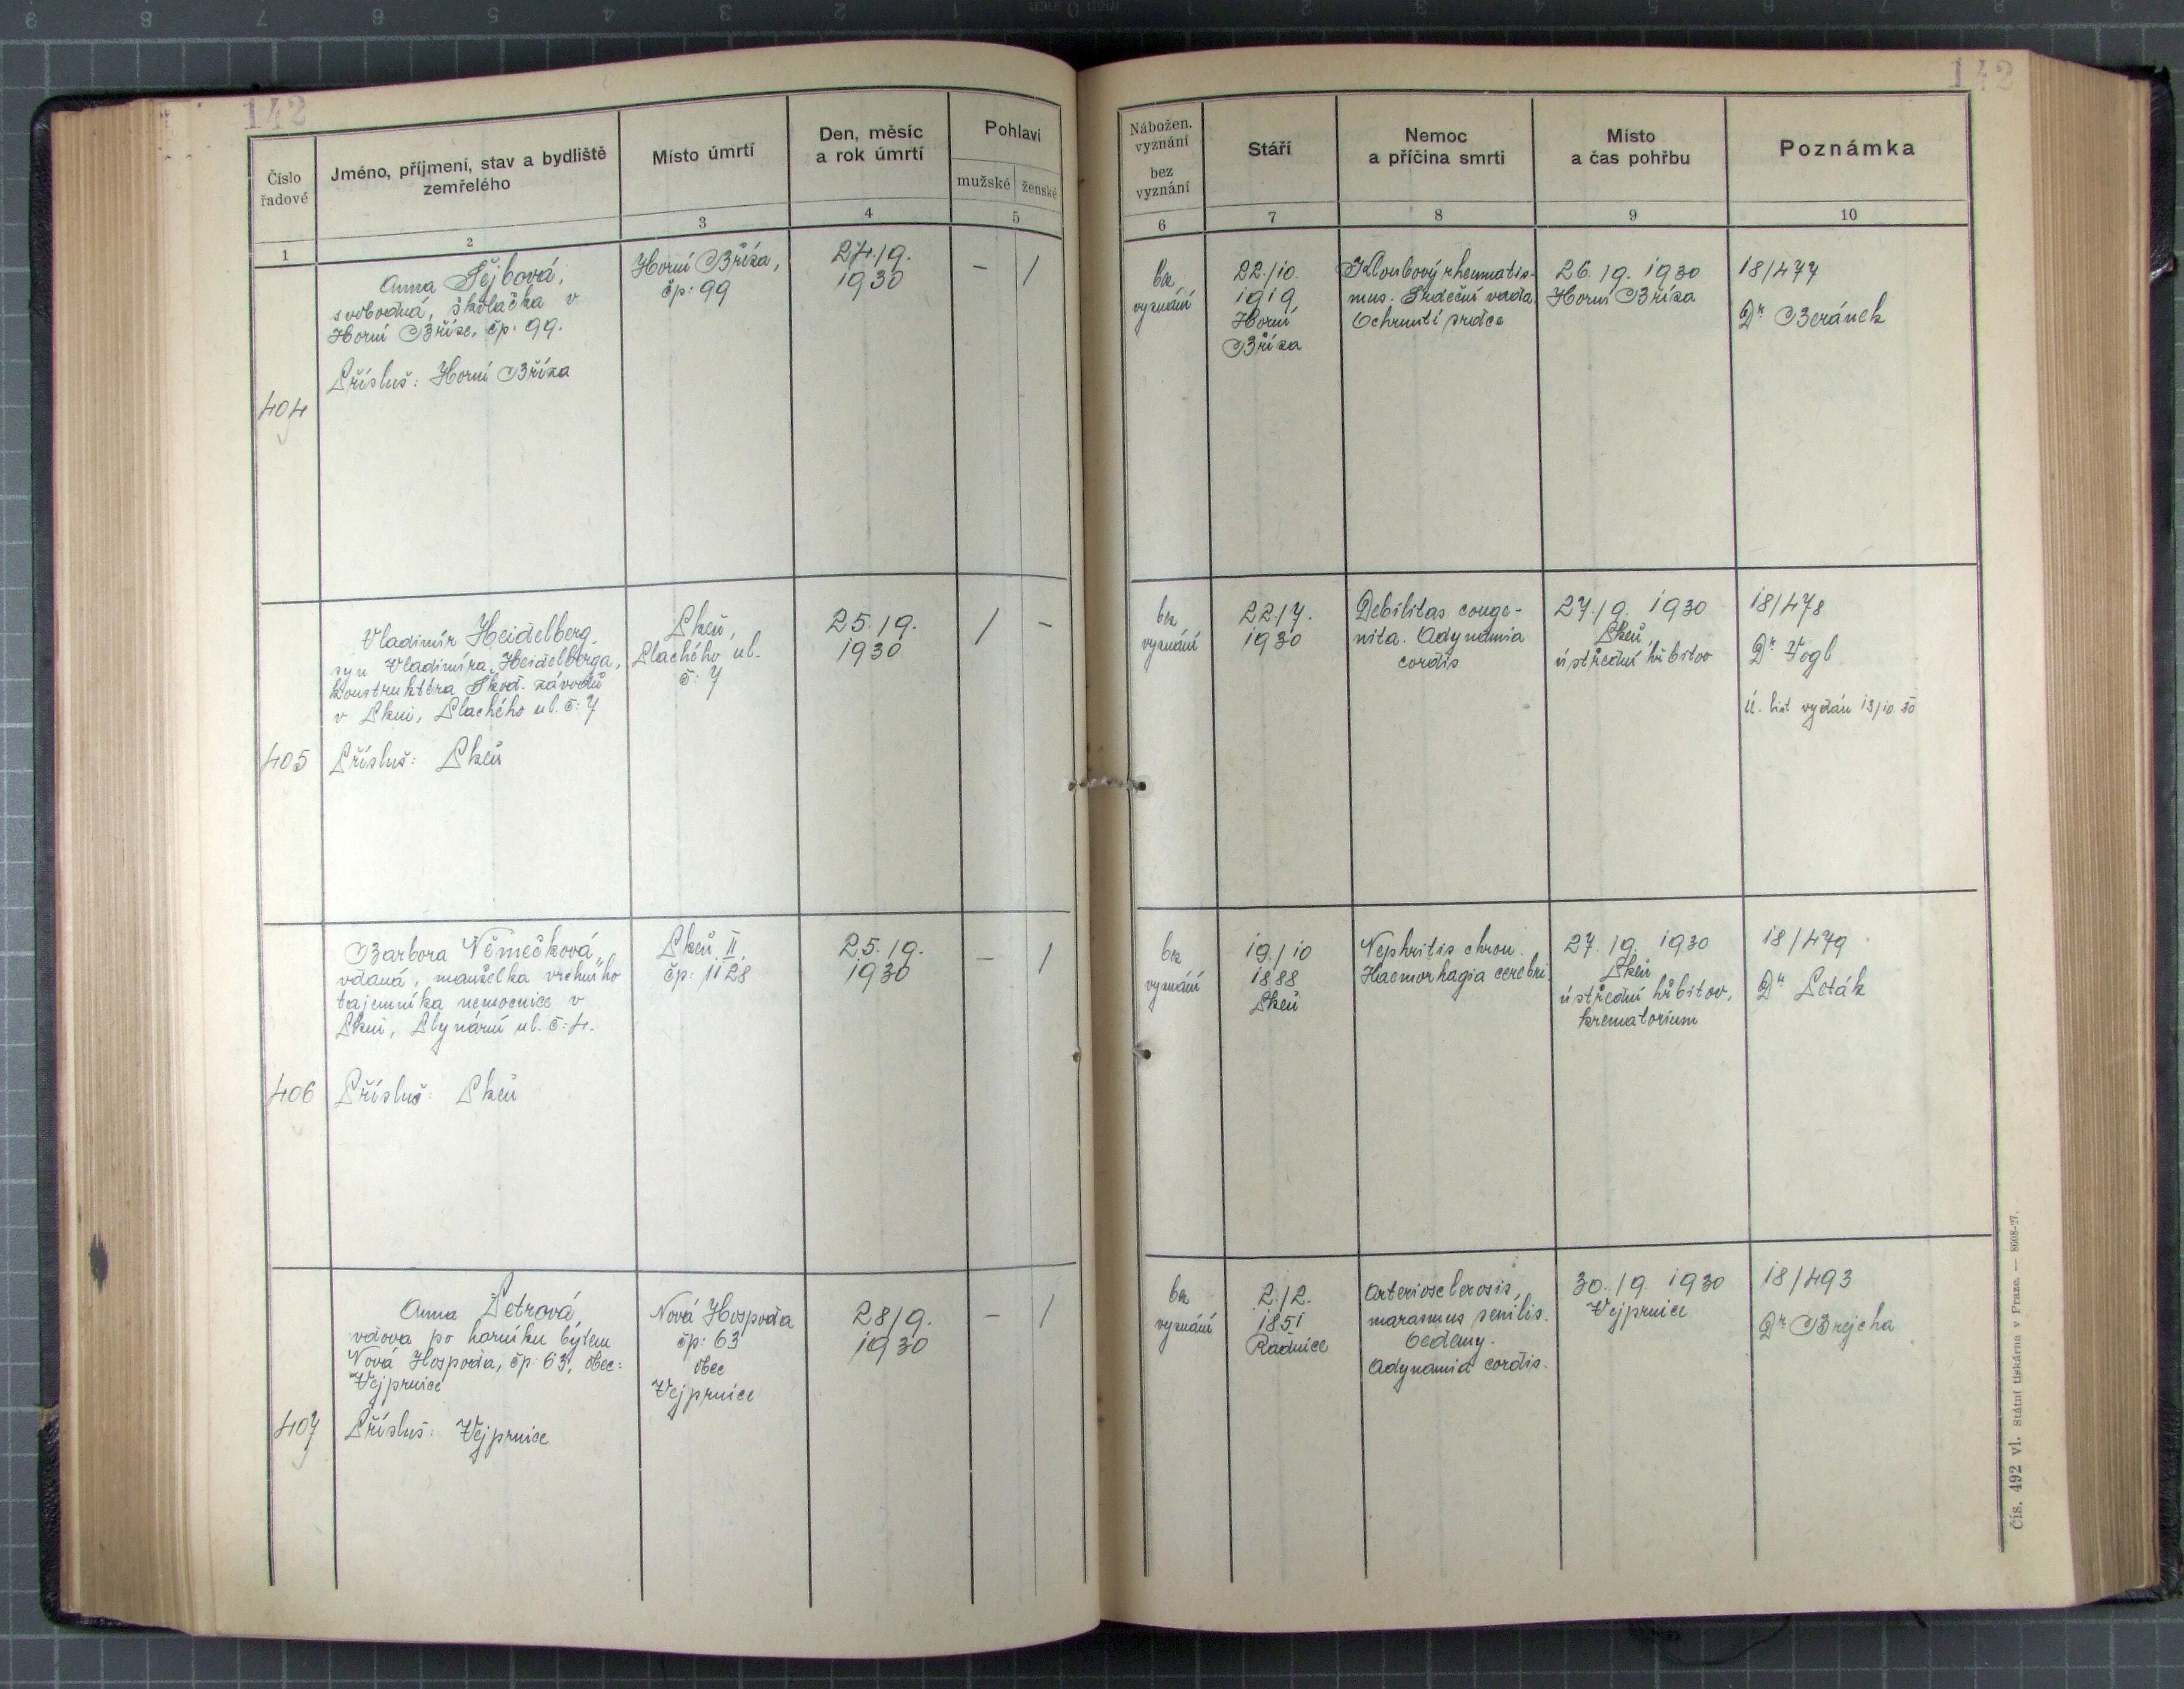 142
142
Číslo řadové
Jméno, příjmení, stav a bydliště zemřelého
Místo úmrtí
Den, měsíc a rok úmrtí
Pohlaví
mužské ženské
Nábožen. vyznání
bez vyznání
Stáří
Nemoc a příčina smrti
Místo a čas pohřbu
Poznámka
1 2 3 4 5 6 7 8 9 10
404
Anna Šejbová,
svobodná, školačka v
Horní Bříze, čp. 99.
Přísluš: Horní Bříza
Horní Bříza,
čp: 99
24./9.
1930
– /
bez
vyznání
22./10.
1919
Horní
Bříza
Kloubový rheumatis-
mus. Srdeční vada.
Ochrnutí srdce
26. /9. 1930
Horní Bříza
18/477
Dr Beránek
405
Vladimír Heidelberg,
syn Vladimíra Heidelberga,
konstruktéra Škod. závodů
v Plzni, Plachého ul. č: 7
Přísluš: Plzeň
Plzeň,
Plachého ul.
č: 7
25. /9.
1930
/ –
bez
vyznání
22./7.
1930
Debilitas conge-
nita. Adynamia
cordis
27./9. 1930
Plzeň,
ústřední hřbitov
18/478
Dr Fogl
Ú. list vydán 13/10. 30
406
Barbora Němečková,
vdaná, manželka vrchního
tajemníka nemocnice v
Plzni, Plynární ul. č: 4.
Přísluš: Plzeň
Plzeň II,
čp: 1128
25. /9.
1930
– /
bez
vyznání
19./10
1888
Plzeň
Nephritis chron.
Haemorhagia cerebri
27. /9. 1930
Plzeň
ústřední hřbitov,
krematorium
18/479
Dr Peták
407
Anna Petrová
vdova po horníku bytem
Nová Hospoda, čp: 63, obec:
Vejprnice
Přísluš: Vejprnice
Nová Hospoda
čp: 63
obec
Vejprnice
28/9.
1930
– /
bez
vyznání
2./2.
1851
Radnice
Arteriosclerosis,
marasmus senilis.
Oedemy.
Adynamia cordis.
30. /9. 1930
Vejprnice
18/493
Dr Brejcha
Čís. 492 vl. Státní tiskárna v Praze. — 8608-27.